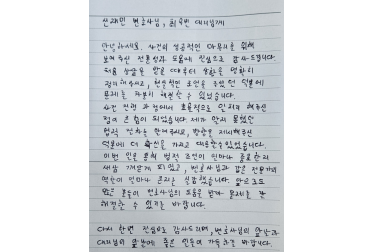 신래민 변호사님, 최우빈 대리님께
안녕하세요. 사건의 성공적인 마무리를 위해
보여주신 전문성과 도움에 진심으로 감사드립니다.
처음 상담을 할 때부터 상황을 명확히
정리해주시고, 현실적인 조언을 주셨던 덕분에
문제를 차분히 해결할 수 있었습니다.
사건 진행 과정에서 효율적으로 일처리 해주신
점이 큰 힘이 되었습니다. 제가 알지 못했던
법적 절차를 알려주시고, 방향을 제시해주신
덕분에 더 확신을 가지고 대응할 수 있었습니다.
이번 일을 통해 법적 조언이 얼마나 중요한지
새삼 깨닫게 되었고, 변호사님과 같은 전문가의
역할이 얼마나 큰지를 실감했습니다. 앞으로도
많은 분들이 변호사님의 도움을 받아 문제를 잘
해결할 수 있기를 바랍니다.
다시 한번 진심으로 감사드리며, 변호사님의 앞날과
대리님의 앞날에 좋은 일들이 가득하길 바랍니다.